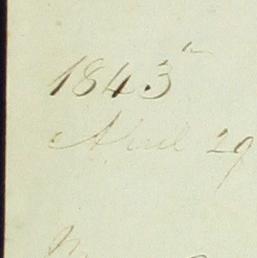 1843
April 29